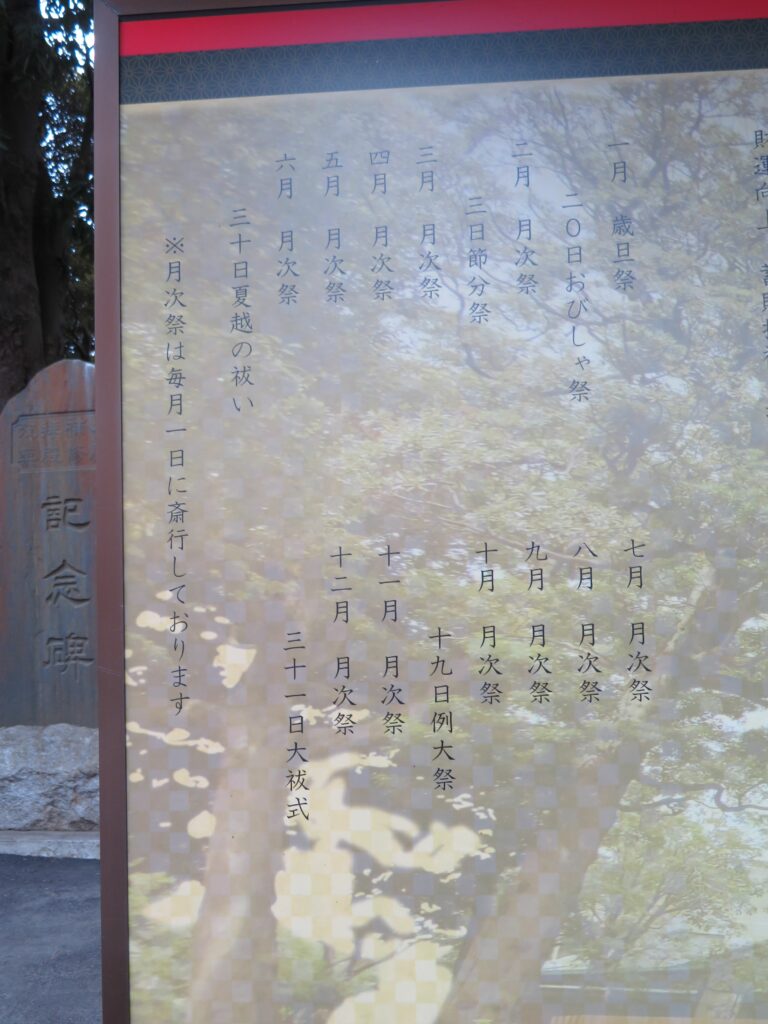 財運向上
一月　歳旦祭
二〇日おびしゃ祭
二月　月次祭
三日節分祭
三月　月次祭
四月　月次祭
五月　月次祭
六月　月次祭
三十日夏越の祓い
七月　月次祭
八月　月次祭
九月　月次祭
十月　月次祭
十九日例大祭
十一月　月次祭
十二月　月次祭
三十一日大祓式
※月次祭は毎月一日に斎行しております
記念碑